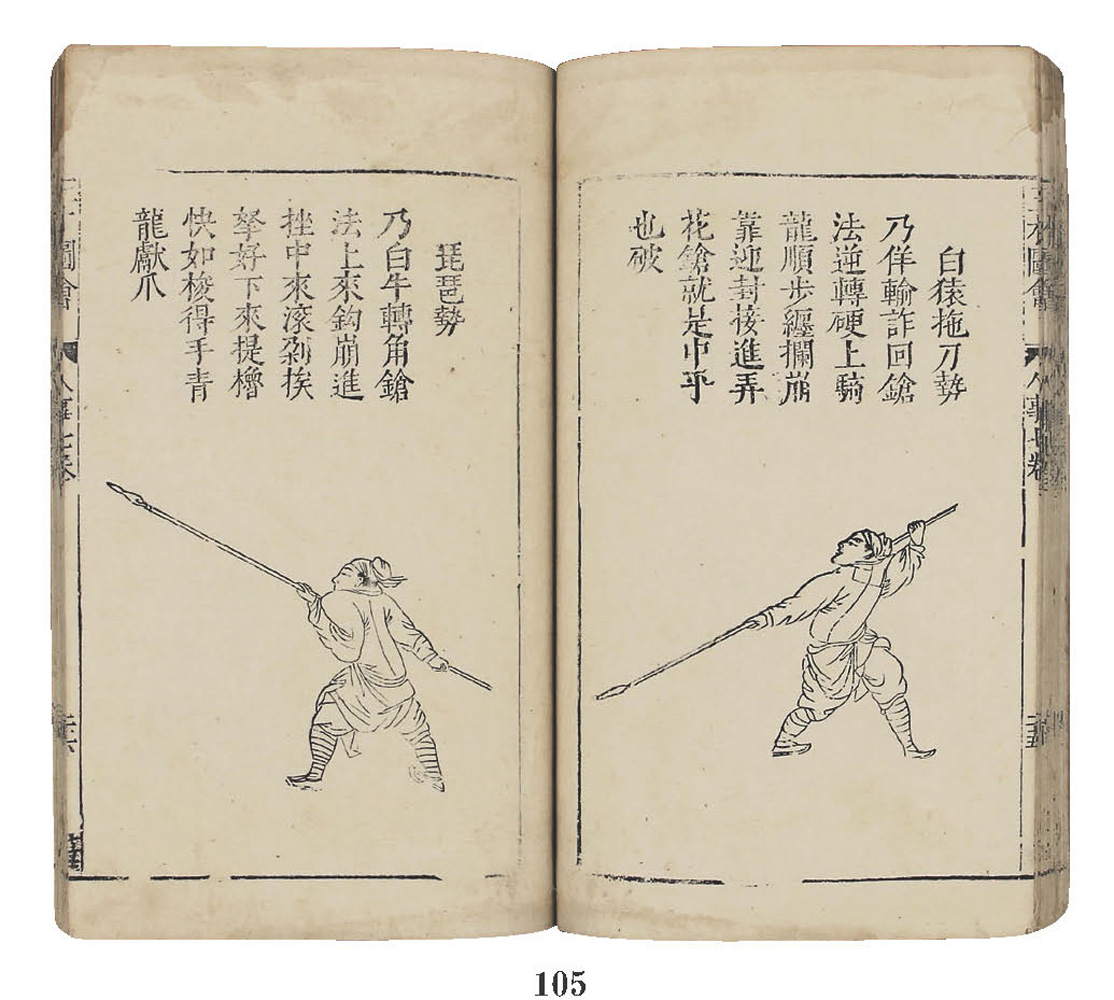 三才圖會
人事七卷
白猿拖刀勢
乃佯輸詐回鎗
法逆轉硬上騎
龍順步纏攔崩
靠迎封接進弄
花鎗就是中平
也破
琵琶勢
乃白牛轉角鎗
法上來鈎崩進
挫中來滚剁挨
拏好下來提櫓
快如梭得手青
龍獻爪
圖會
人事七卷
105